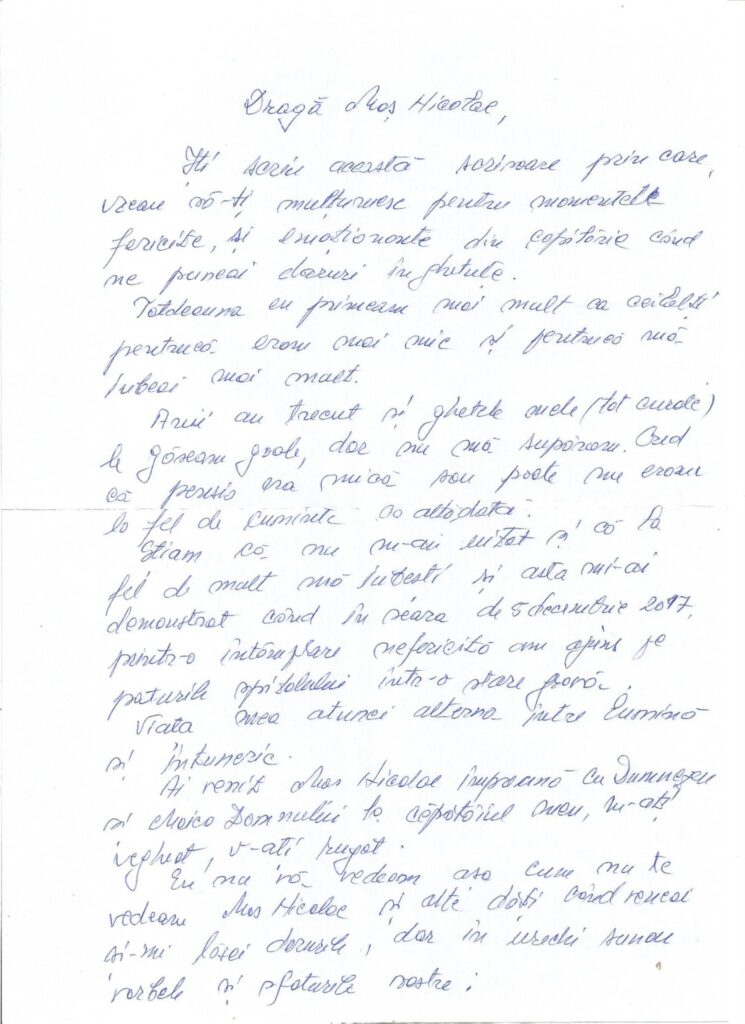 Dragă Moș Nicolae,
Iți scriu această scrisoare prin care,
vreau să-ți mulțumesc pentru momentele
fericite, și emoționante din copilăria când
ne puneai daruri în ghetuțe.
Totdeauna eu primeam mai mult ca ceilalți
pentrucă eram mai mic și pentrucă mă
iubeai mai mult.
Anii au trecut și ghetele mele (tot curate)
le găseam goale, dar nu mă supăram. Cred
că pensia era mică sau poate nu eram
la fel de cuminte ca altădată.
Știam că nu m-ai uitat și că la
fel de mult mă iubești și asta mi-ai
demonstrat când în seara de 5 decembrie 2017,
printr-o întâmplare nefericită am ajuns pe
paturile spitalului într-o stare gravă.
Viata mea atunci alterna între lumină
și întuneric.
Ai venit Moș Nicolae împreună cu Dumnezeu
și Maica Domnului la căpătâiul meu, m-ați
vegheat, v-ati rugat.
Eu nu vă vedeam asa cum nu te
vedeam Mos Nicolae și alte dăți când veneai
si-mi lăsai darurile, dar în urechi sunau
vorbele și sfaturile voastre: